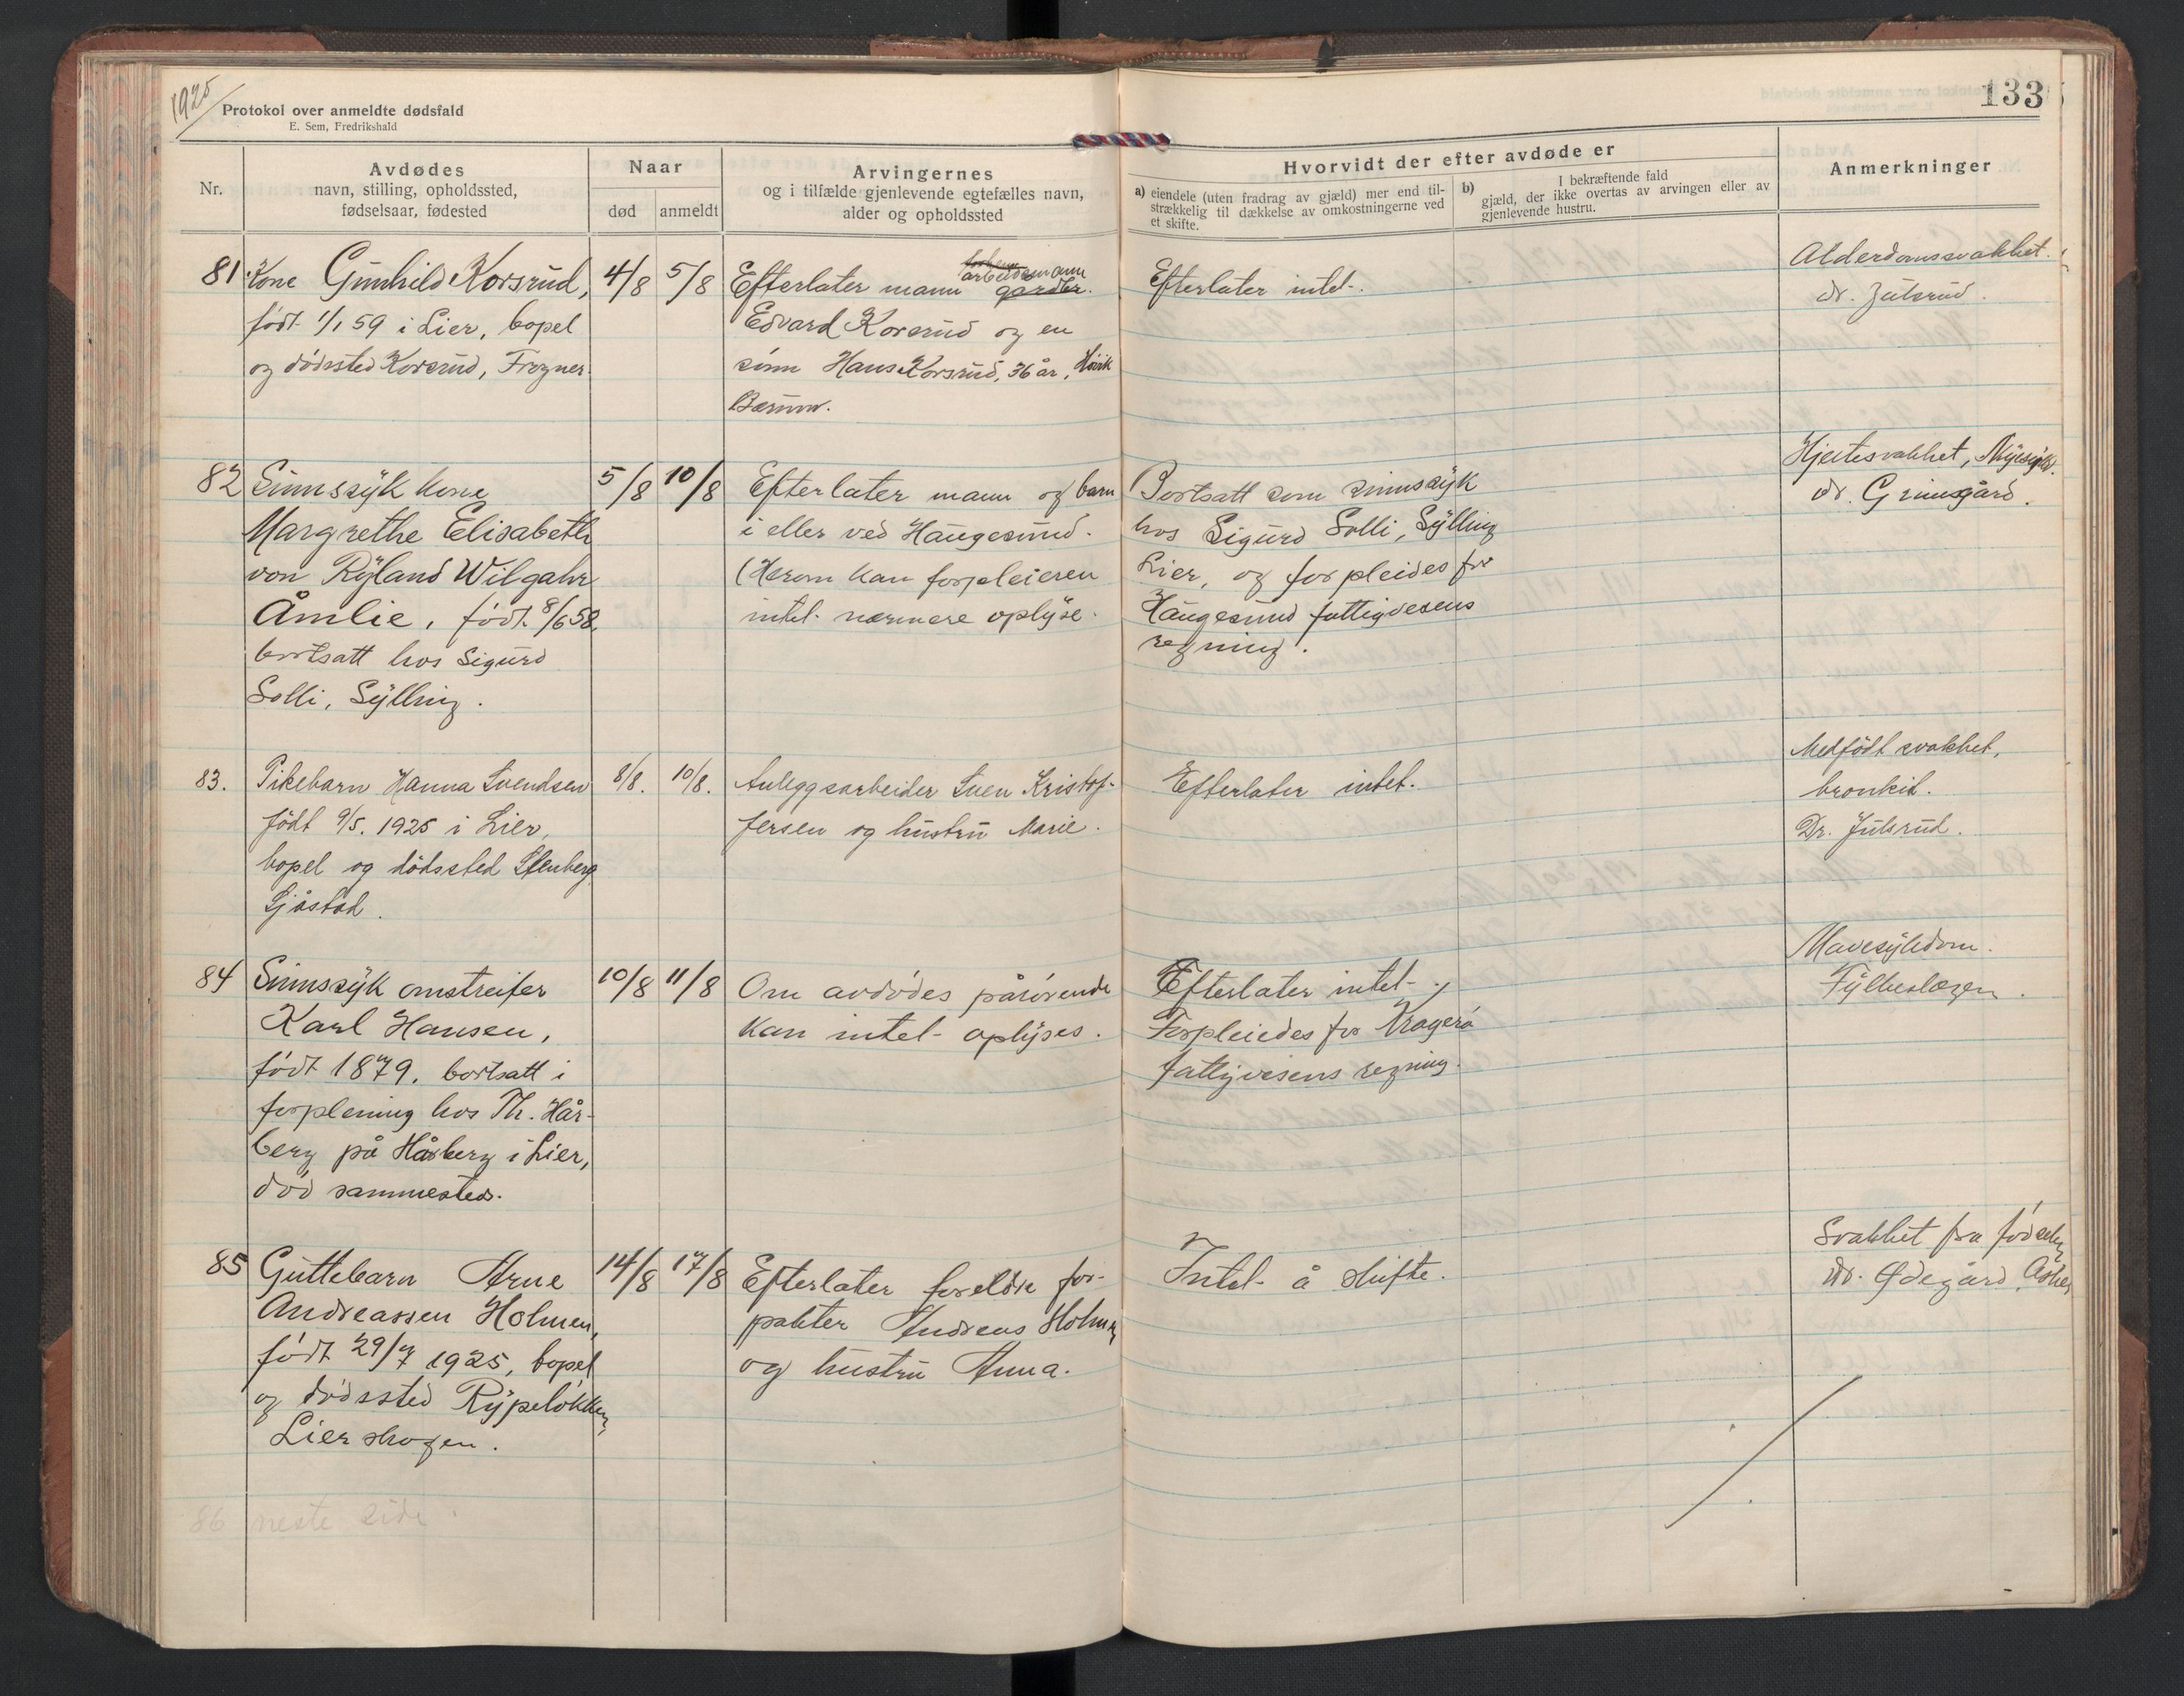 1925
Protokol over anmeldte dødsfald
E. Sem, Fredrikshald
133
Nr.
Avdødes
navn, stilling, opholdssted,
fødselsaar, fødested
Naar
død
anmeldt
Arvingernes
og i tilfælde gjenlevende egtefælles navn,
alder og opholdssted
Hvorvidt der efter avdøde er
a) eiendele (uten fradrag av gjæld) mer end til-
strækkelig til dækkelse av omkostningerne ved
et skifte.
b) I bekræftende fald
gjæld, der ikke overtas av arvingen eller av
gjenlevende hustru.
Anmerkninger
81 Kone Gunhild Korsrud,
født 1/1 59 i Lier, bopel
og dødssted Korsrud, Frogner.
4/8
5/8
arbeidsmann
Efterlater mann gardbr.
Edvard Korsrud og en
sønn Hans Korsrud, 36 år, Høvik
Bærum.
Efterlater intet.
Alderdomssvakhet.
dr. Julsrud.
82 Sinnssyk kone
Margrethe Elisabeth
von Ryland Wilgahr
Åmlie, født 8/6 58,
bortsatt hos Sigurd
Solli, Sylling.
5/8
10/8
Efterlater mann og barn
i eller ved Haugesund.
(Herom kan forpleieren
intet nærmere oplyse.
Bortsatt som sinnssyk
hos Sigurd Solli, Sylling
Lier, og forpleides for
Haugesund fattigvesens
regning.
Hjertesvakhet,
dr. Grimsgård.
83. Pikebarn Hanna Svendsen
født 9/5. 1925 i Lier,
bopel og dødssted Stenberg
Sjåstad.
8/8.
10/8.
Anleggsarbeider Sven Kristof-
fersen og hustru Marie.
Efterlater intet.
Medfødt svakhet,
bronkit.
Dr. Julsrud.
84 Sinnssyk omstreifer
Karl Hansen,
født 1879, bortsatt i
forpleining hos Th. Hår-
berg på Hårberg i Lier,
død sammesteds.
10/8
11/8
Om avdødes pårørende
kan intet oplyses.
Efterlater intet.
Forpleiedes for Kragerø
fattigvesens regning.
Mavesykdom.
Fylkeslægen.
85 Guttebarn Arne
Andreassen Holmen,
født 29/7 1925, bopel
og dødssted Rypeløkken,
Lierskogen.
14/8
17/8
Efterlater foreldre for-
pakter Andreas Holmen
og hustru Anna.
Intet å skifte.
Svakhet fra fødselen
dr. Ødegård, Asker
86 neste side.